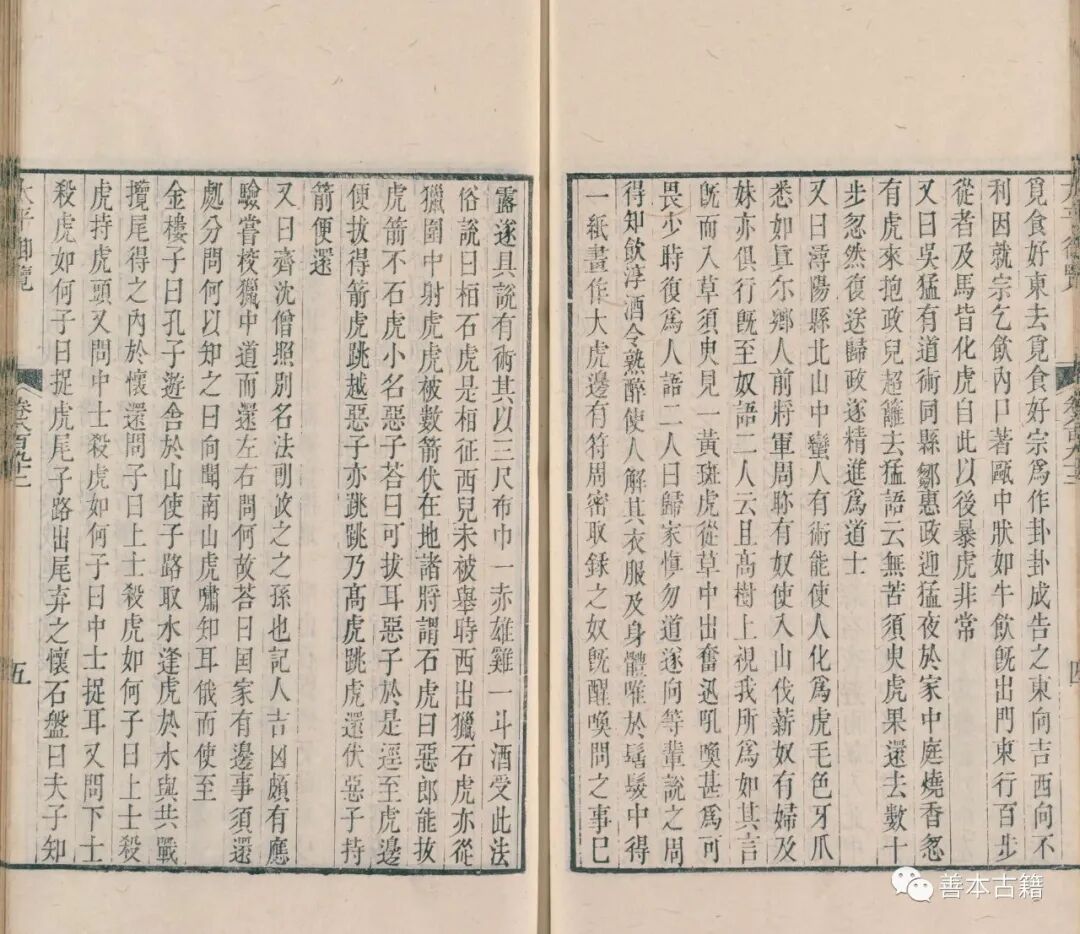 覓食好東去覓食好宗爲作卦卦成告之東向吉西向不
利因就宗乞飲內口著甌中狀如牛飲旣出門東行百步
從者及馬皆化虎自此以後暴虎非常
又曰吳猛有道術同縣鄒惠政迎猛夜於家中庭燒香忽
有虎來抱政兒超籬去猛語云無苦須臾虎果還去數十
步忽然復送歸政遂精進爲道士
又曰潯陽縣北山中蠻人有術能使人化爲虎毛色牙爪
悉如眞尔鄉人前將軍周眕有奴使入山伐薪奴有婦及
妹亦俱行旣至奴語二人云且髙樹上視我所爲如其言
旣而入草須臾見一黃斑虎從草中出奮迅吼喚甚爲可
畏少時復爲人語二人曰歸家愼勿道遂向等輩說之周
得知飲淳酒令熟醉使人解其衣服及身體唯於髻髮中得
一紙畫作大虎邊有符周密取錄之奴旣醒喚問之事已
露遂具說有術其以三尺布巾一赤雄雞一斗酒受此法
俗說曰桓石虎是桓征西兒未被舉時西出獵石虎亦從
獵圍中射虎虎被數箭伏在地諸將謂石虎曰惡郎能拔
虎箭不石虎小名惡子荅曰可拔耳惡子於是逕至虎邊
便拔得箭虎跳越惡子亦跳跳乃髙虎跳虎還伏惡子持
箭便還
又曰齊沈僧照別名法朗攸之之孫也記人吉凶頗有應
驗嘗校獵中道而還左右問何故荅曰国家有邊事須還
處分問何以知之曰向聞南山虎嘯知耳俄而使至
金樓子曰孔子遊舍於山使子路取水逢虎於水與共戰
攬尾得之內於懷還問子曰上士殺虎如何子曰上士殺
虎持虎頭又問中士殺虎如何子曰中士捉耳又問下士
殺虎如何子曰捉虎尾子路出尾弃之懷石盤曰夫子知
太平御覽
卷八百九十二
五
四
善本古籍